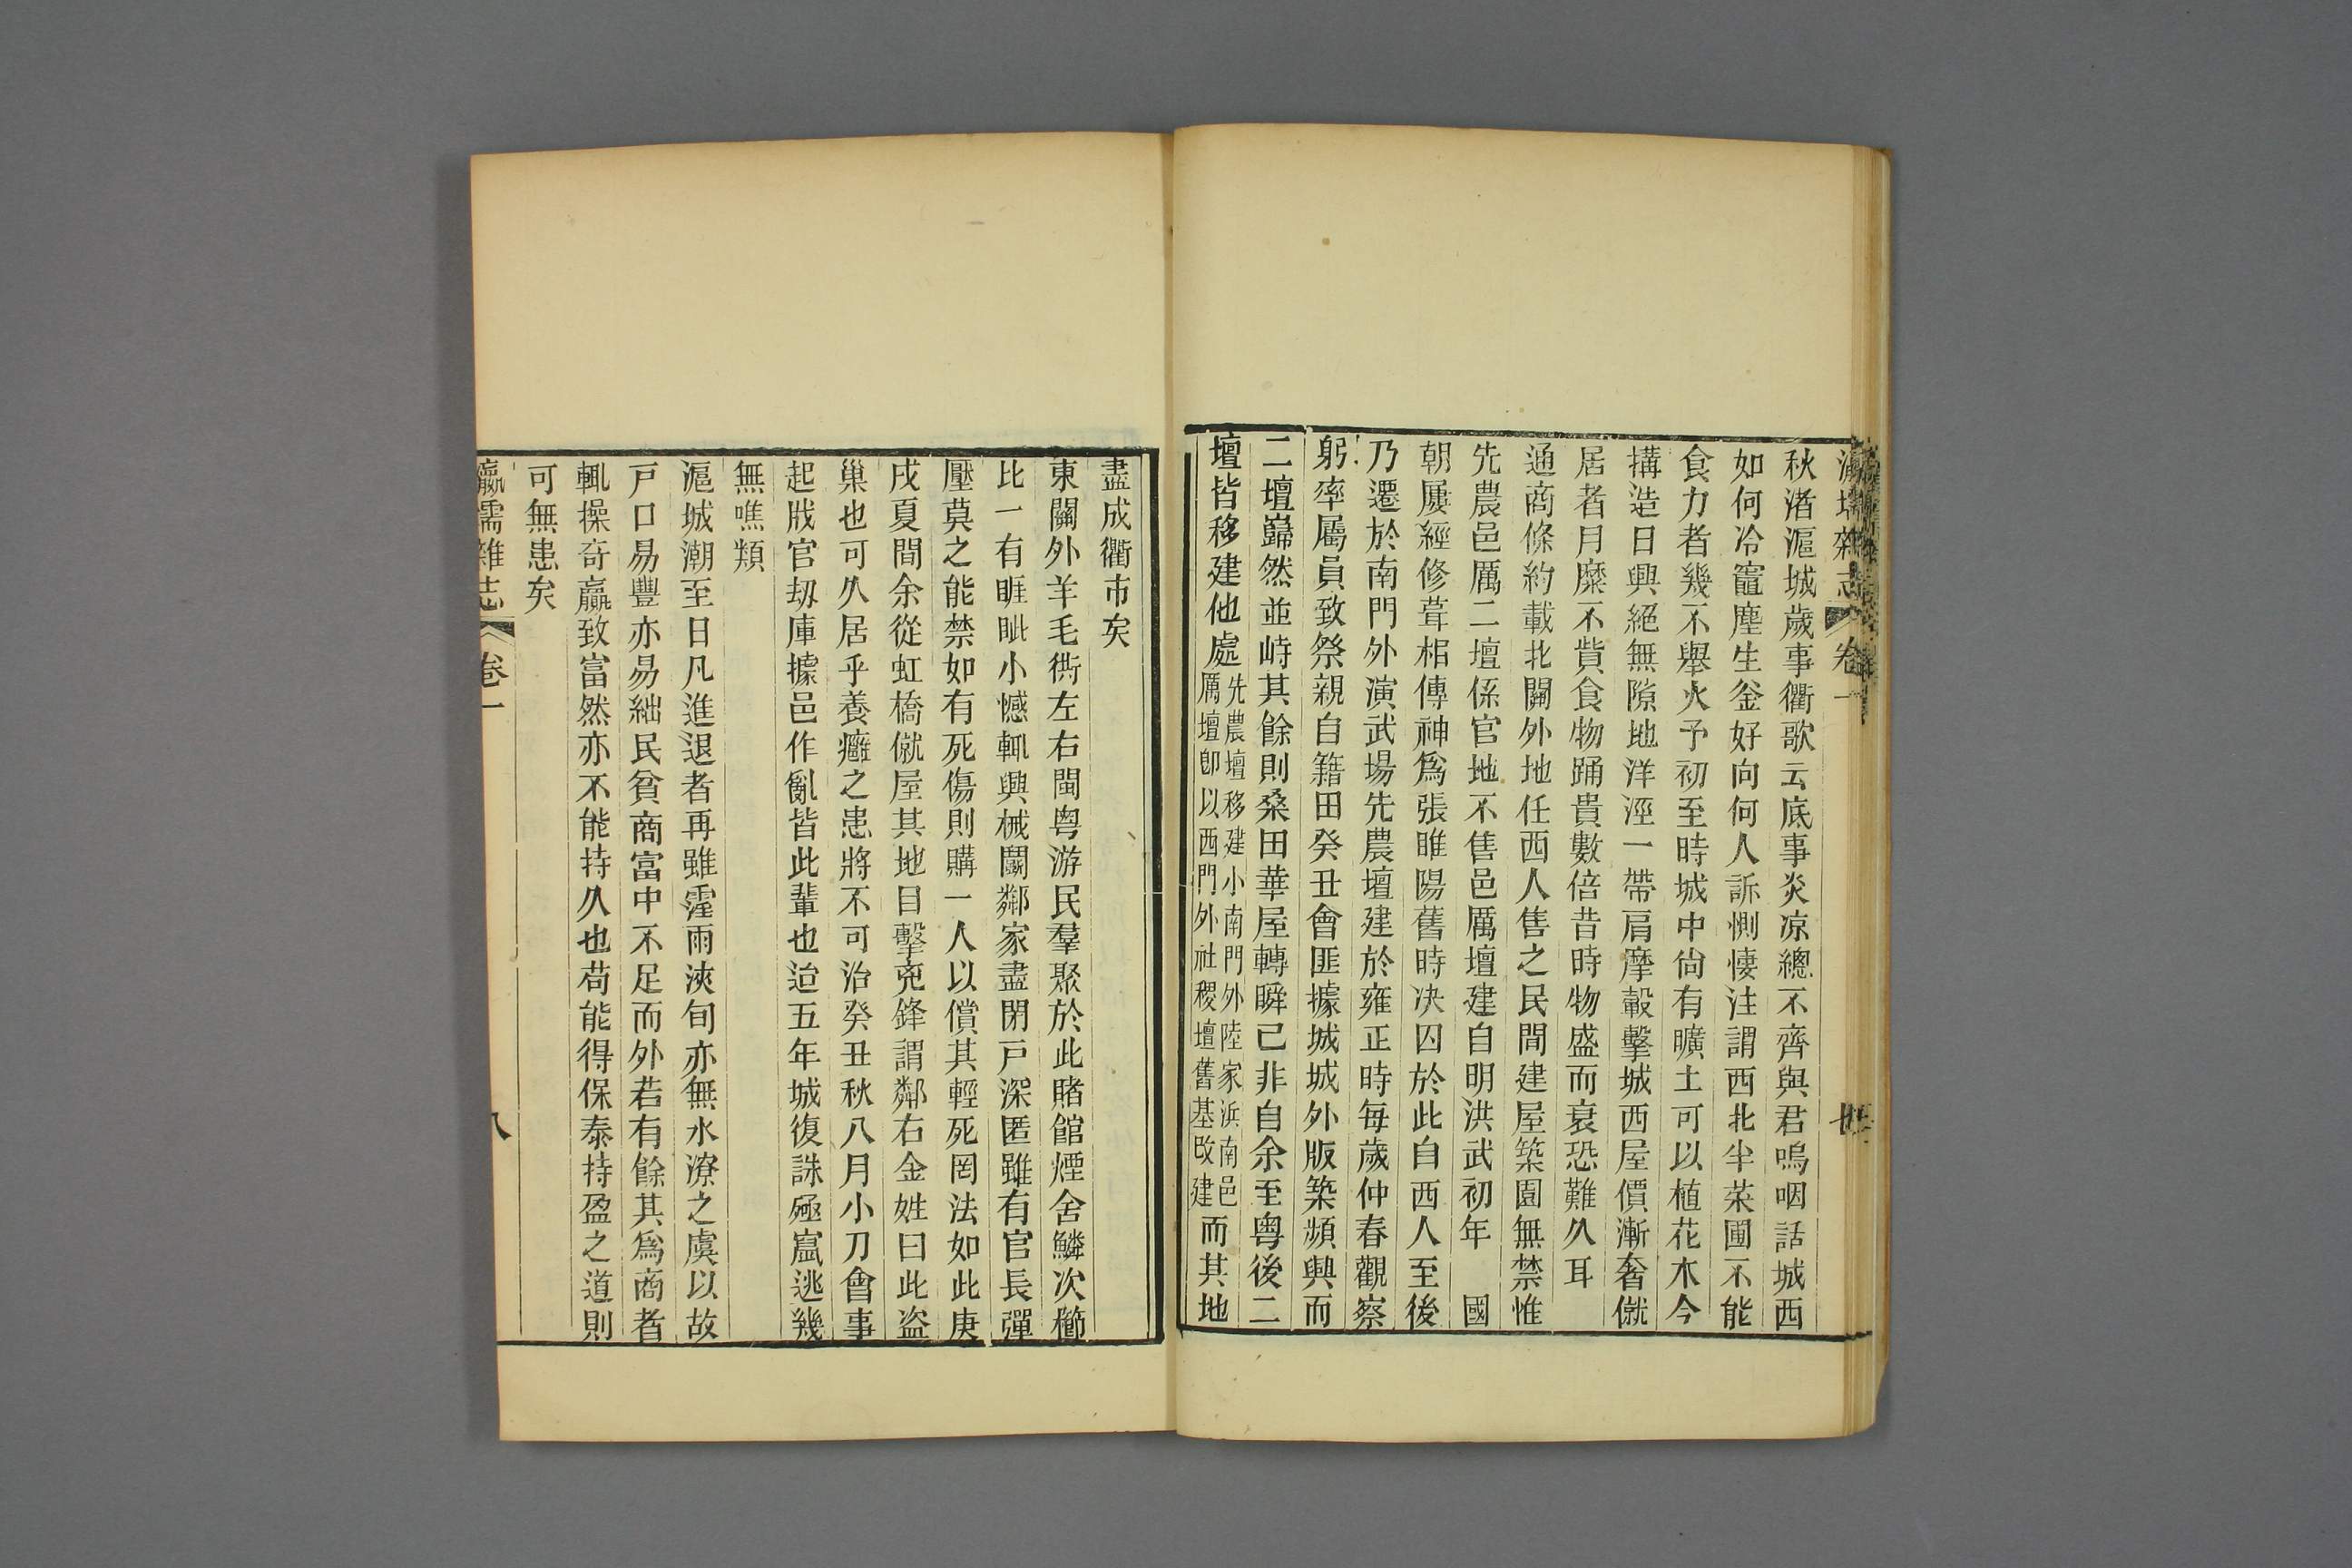 瀛壖雜志 卷一
秋渚滬城歲事衢歌云底事炎凉總不齊與君嗚咽話城西
如何冷竈塵生釜好向何人訴惻悽注謂西北半菜圃不能
食力者幾不舉火予初至時城中尙有曠土可以植花木今
搆造日興絕無隙地洋涇一帶肩摩轂擊城西屋價漸奢僦
居者月糜不貲食物踊貴數倍昔時物盛而衰恐難久耳
通商條約載北關外地任西人售之民間建屋築園無禁惟
先農邑厲二壇係官地不售邑厲壇建自明洪武初年　國
朝屢經修葺相傳神爲張睢陽舊時决囚於此自西人至後
乃遷於南門外演武場先農壇建於雍正時每歲仲春觀察
躬率屬員致祭親自籍田癸丑會匪據城城外版築頻興而
二壇巋然並峙其餘則桑田華屋轉瞬已非自余至粤後二
壇皆移建他處先農壇移建小南門外陸家浜南邑厲壇卽以西門外社稷壇舊基改建而其地
盡成衢市矣
東關外羊毛衖左右閩粤游民羣聚於此賭館煙舍鱗次櫛
比一有睚眦小憾輒興械鬭鄰家盡閉戸深匿雖有官長彈
壓莫之能禁如有死傷則購一人以償其輕死罔法如此庚
戌夏間余從虹橋僦屋其地目擊兇鋒謂鄰右金姓曰此盜
巢也可久居乎養癰之患將不可治癸丑秋八月小刀會事
起戕官刼庫據邑作亂皆此輩也迨五年城復誅殛竄逃幾
無噍類
滬城潮至日凡進退者再雖霪雨浹旬亦無水潦之虞以故
戸口易豐亦易絀民貧商富中不足而外若有餘其爲商者
輒操奇贏致富然亦不能持久也苟能得保泰持盈之道則
可無患矣
瀛壖雜志 卷一 八